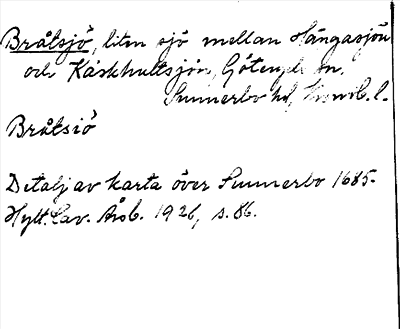 Bråtsjö, liten sjö mellan Hängasjön
och Kåskhultsjön,
Sunnerbo hd, l.
Bråtsiö
Detalj av karta över Sunnerbo 1685.
Hylt. Cav. Årsb. 1926, s. 86.